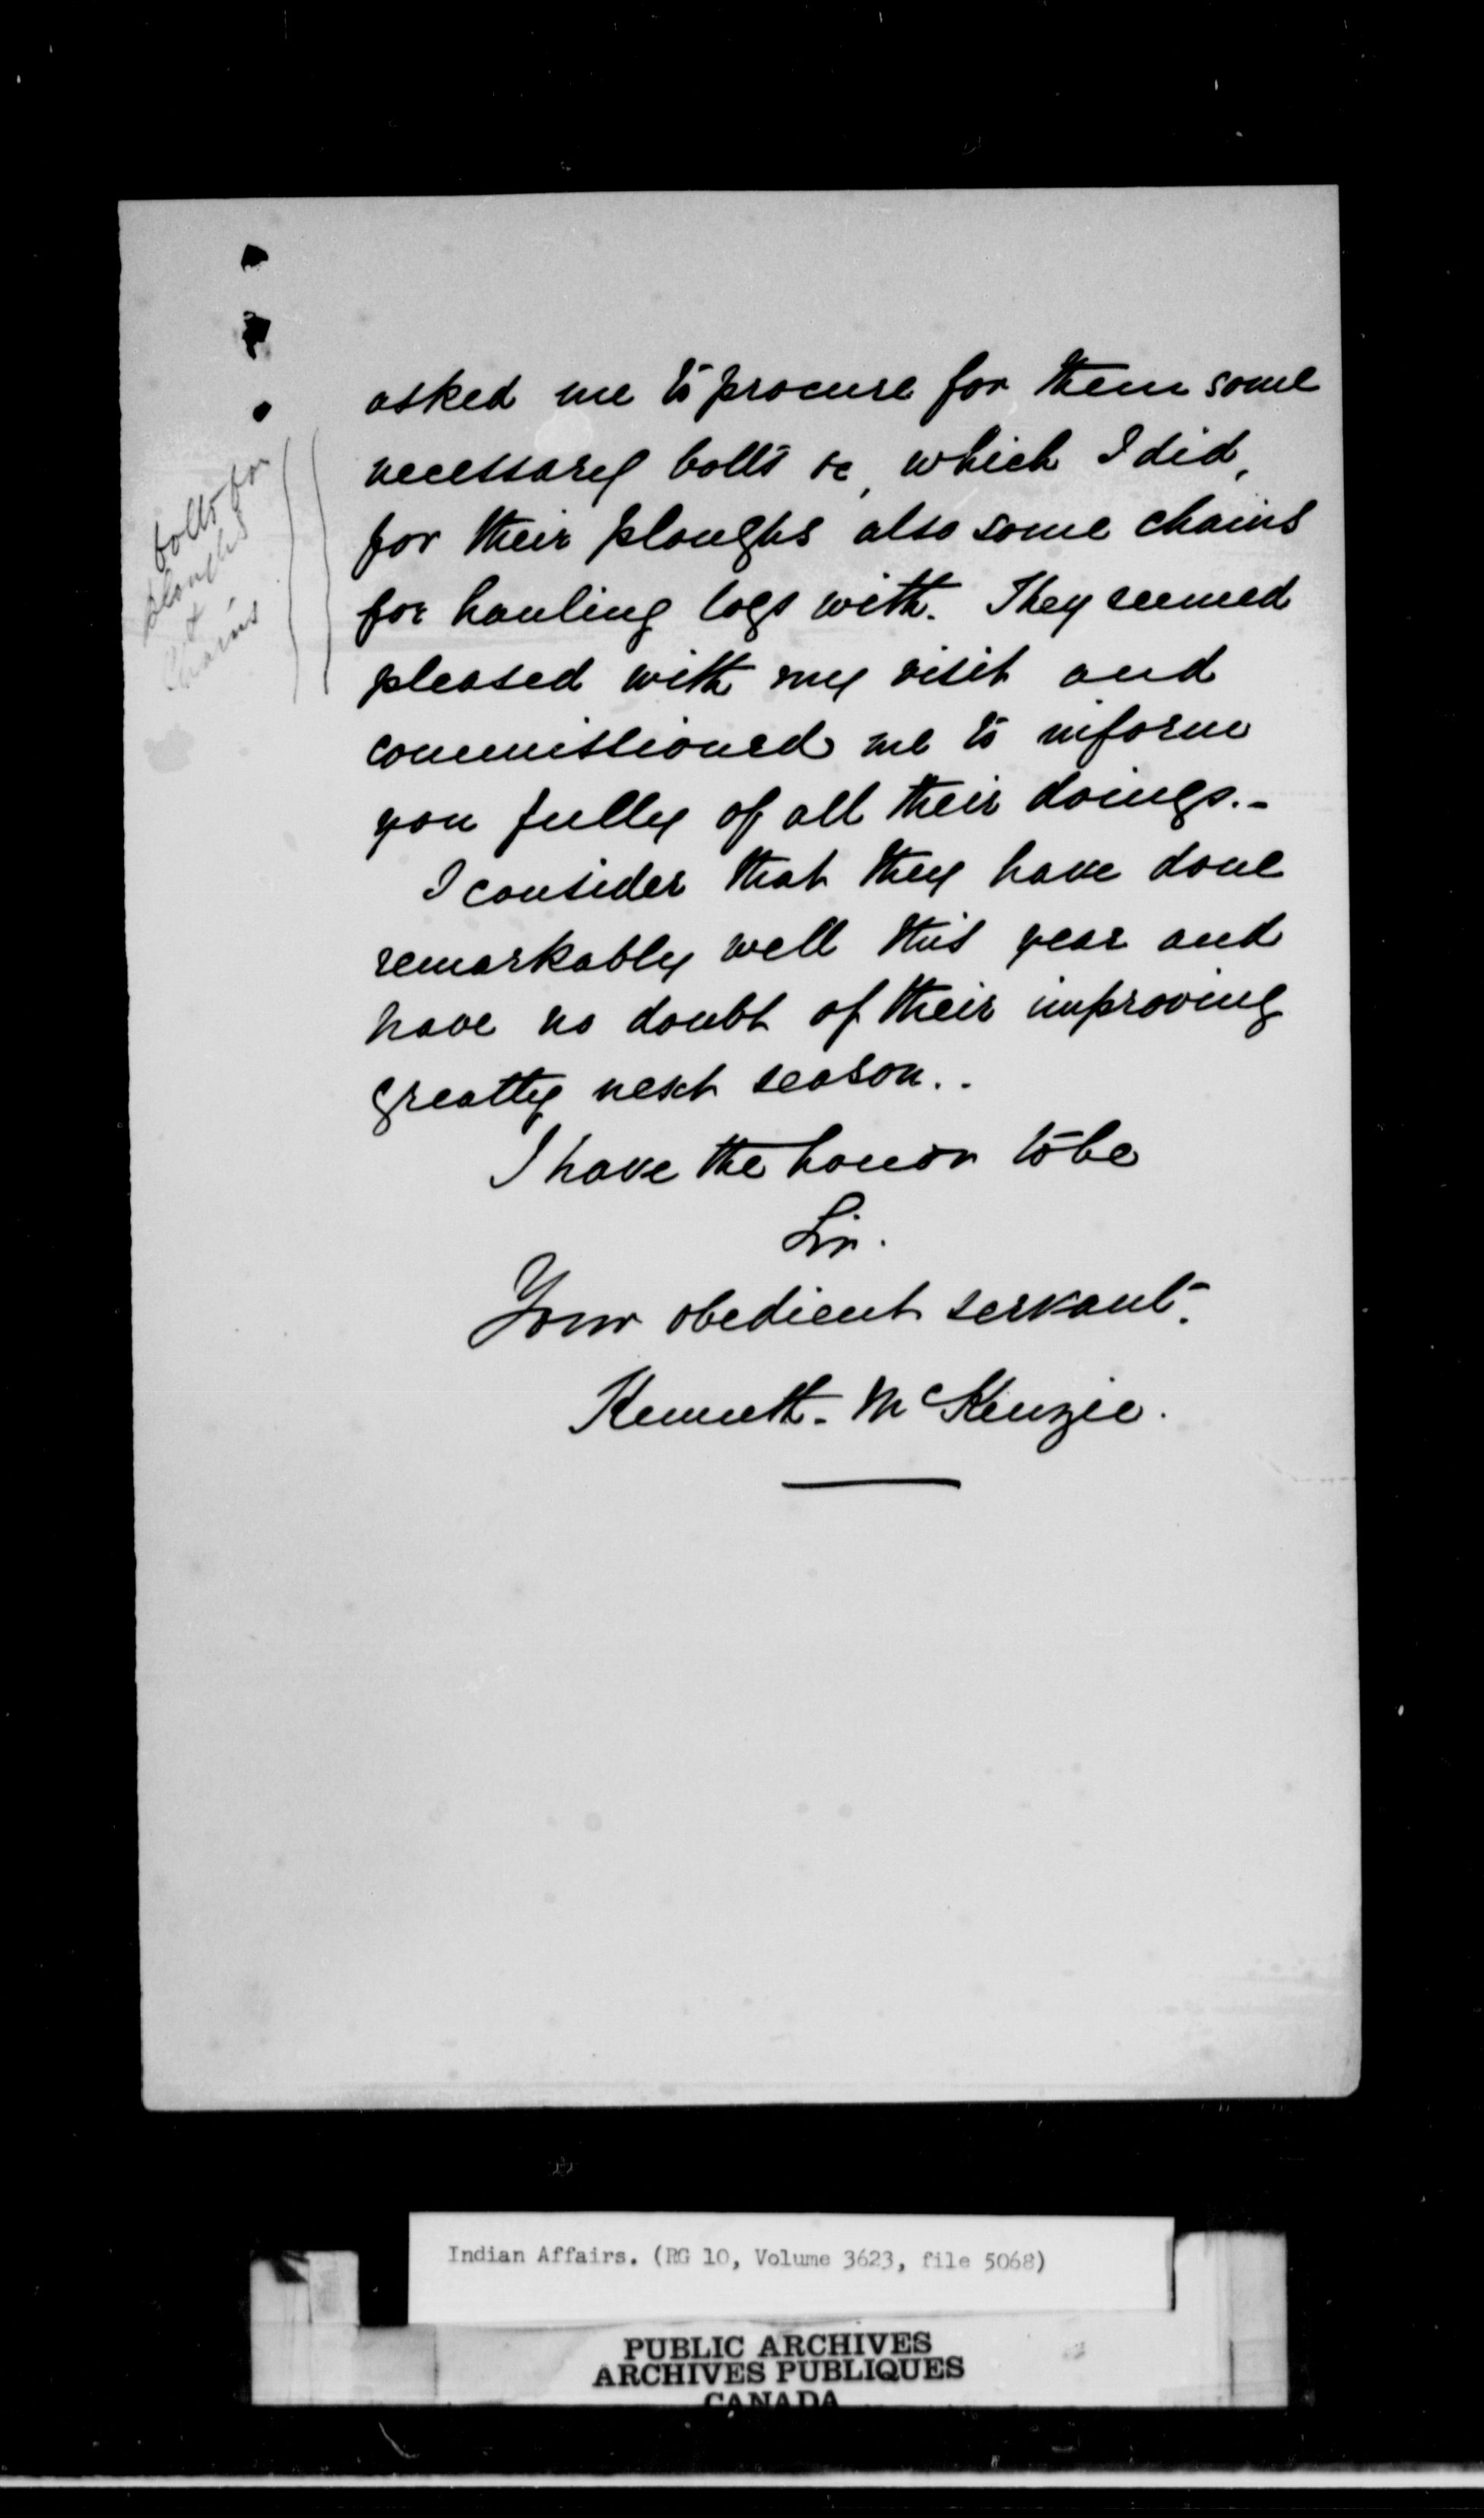 asked me to procure for them some
necessary bolts &c, which I did,
for their ploughs also some chains
for hauling logs with. They seemed
pleased with my visit and
commissioned me to inform
you fully of all their doings.-
I consider that they have done
remarkably well this year and
have no doubt of their improving
greatly next season..
I have the honor to be
Sir.
Your obedient servant.
Kenneth. McKenzie.
bolts for
ploughs
&
Chains
Indian Affairs. (RG 10, Volume 3623, file 5068)
PUBLIC ARCHIVES
ARCHIVES PUBLIQUES
CANADA